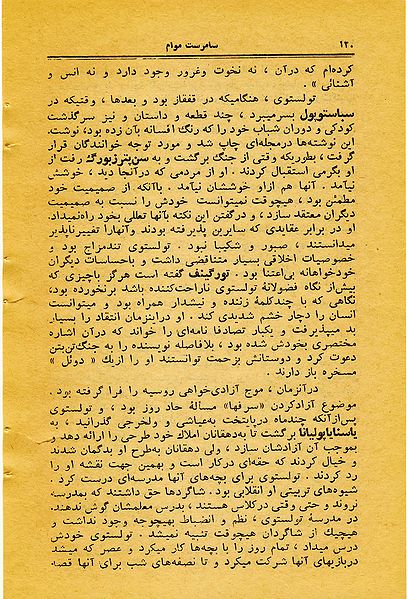 ۱۲۰ سامرست موام
کرده‌ام که درآن ، نه نخوت وغرور وجود دارد و نه انس و
آشنائی » .
تولستوی ، هنگامیکه در قفقاز بود و بعدها ، وقتیکه در
سباستوپول بسرمیبرد ، چند قطعه و داستان و نیز سرگذشت
کودکی و دوران شباب خود را که رنگ افسانه بآن زده بود، نوشت.
این نوشته‌ها درمجله‌ای چاپ شد و مورد توجه خوانندگان قرار
گرفت ، بطوریکه وقتی از جنگ برگشت و به سن‌پترزبورگ رفت از
او بگرمی استقبال کردند . او از مردمی که درآنجا دید ، خوشش
نیآمد . آنها هم ازاو خوششان نیآمد . باآنکه از صمیمیت خود
مطمئن بود ، هیچوقت نمیتوانست خودش را نسبت به صمیمیت
دیگران معتقد سازد ، و درگفتن این نکته بآنها تعللی بخود راه‌نمیداد.
او در برابر عقایدی که سایرین پذیرفته بودند وآنهارا تغییرناپذیر
میدانستند ، صبور و شکیبا نبود . تولستوی تندمزاج بود و
خصوصیات اخلاقی بسیار متناقضی داشت و باحساسات دیگران
خودخواهانه بی‌اعتنا بود . تورگنیف گفته است هرگز باچیزی که
بیش‌از نگاه فضولانهٔ تولستوی ناراحت‌کننده باشد برنخورده بود،
نگاهی که با چندکلمهٔ زننده و نیشدار همراه بود و میتوانست
انسان را دچار خشم شدیدی کند . او دراینزمان انتقاد را بسیار
بد میپذیرفت و یکبار تصادفا نامه‌ای را خواند که درآن اشاره
مختصری بخودش شده بود ، بلافاصله نویسنده را به جنگ‌تن‌بتن
دعوت کرد و دوستانش بزحمت توانستند او را ازیک « دوئل »
مسخره باز دارند .
درآنزمان ، موج آزادی‌خواهی روسیه را فرا گرفته بود .
موضوع آزادکردن «سرفها» مسالهٔ حاد روز بود ، و تولستوی
پس‌ازآنکه چندماه درپایتخت به‌عیاشی و ولخرجی گذرانید ، به
یاسنایاپولیانا برگشت تا به‌دهقانان املاک خود طرحی را ارائه دهد و
بموجب آن آزادشان سازد ، ولی دهقانان به‌طرح او بدگمان شدند
و خیال کردند که حقه‌ای درکار است و بهمین جهت نقشه او را
رد کردند . تولستوی برای بچه‌های آنها مدرسه‌ای درست کرد .
شیوه‌های تربیتی او انقلابی بود . شاگردها حق داشتند که بمدرسه
نروند و حتی وقتی درکلاس هستند ، بدرس معلمشان گوش ندهند.
در مدرسهٔ تولستوی ، نظم و انضباط بهیچوجه وجود نداشت و
هیچیک از شاگردان هیچوقت تنبیه نمیشد . تولستوی خودش
درس میداد ، تمام روز را با بچه‌ها کار میکرد و عصر که میشد
دربازیهای آنها شرکت میکرد و تا نصفه‌های شب برای آنها قصه